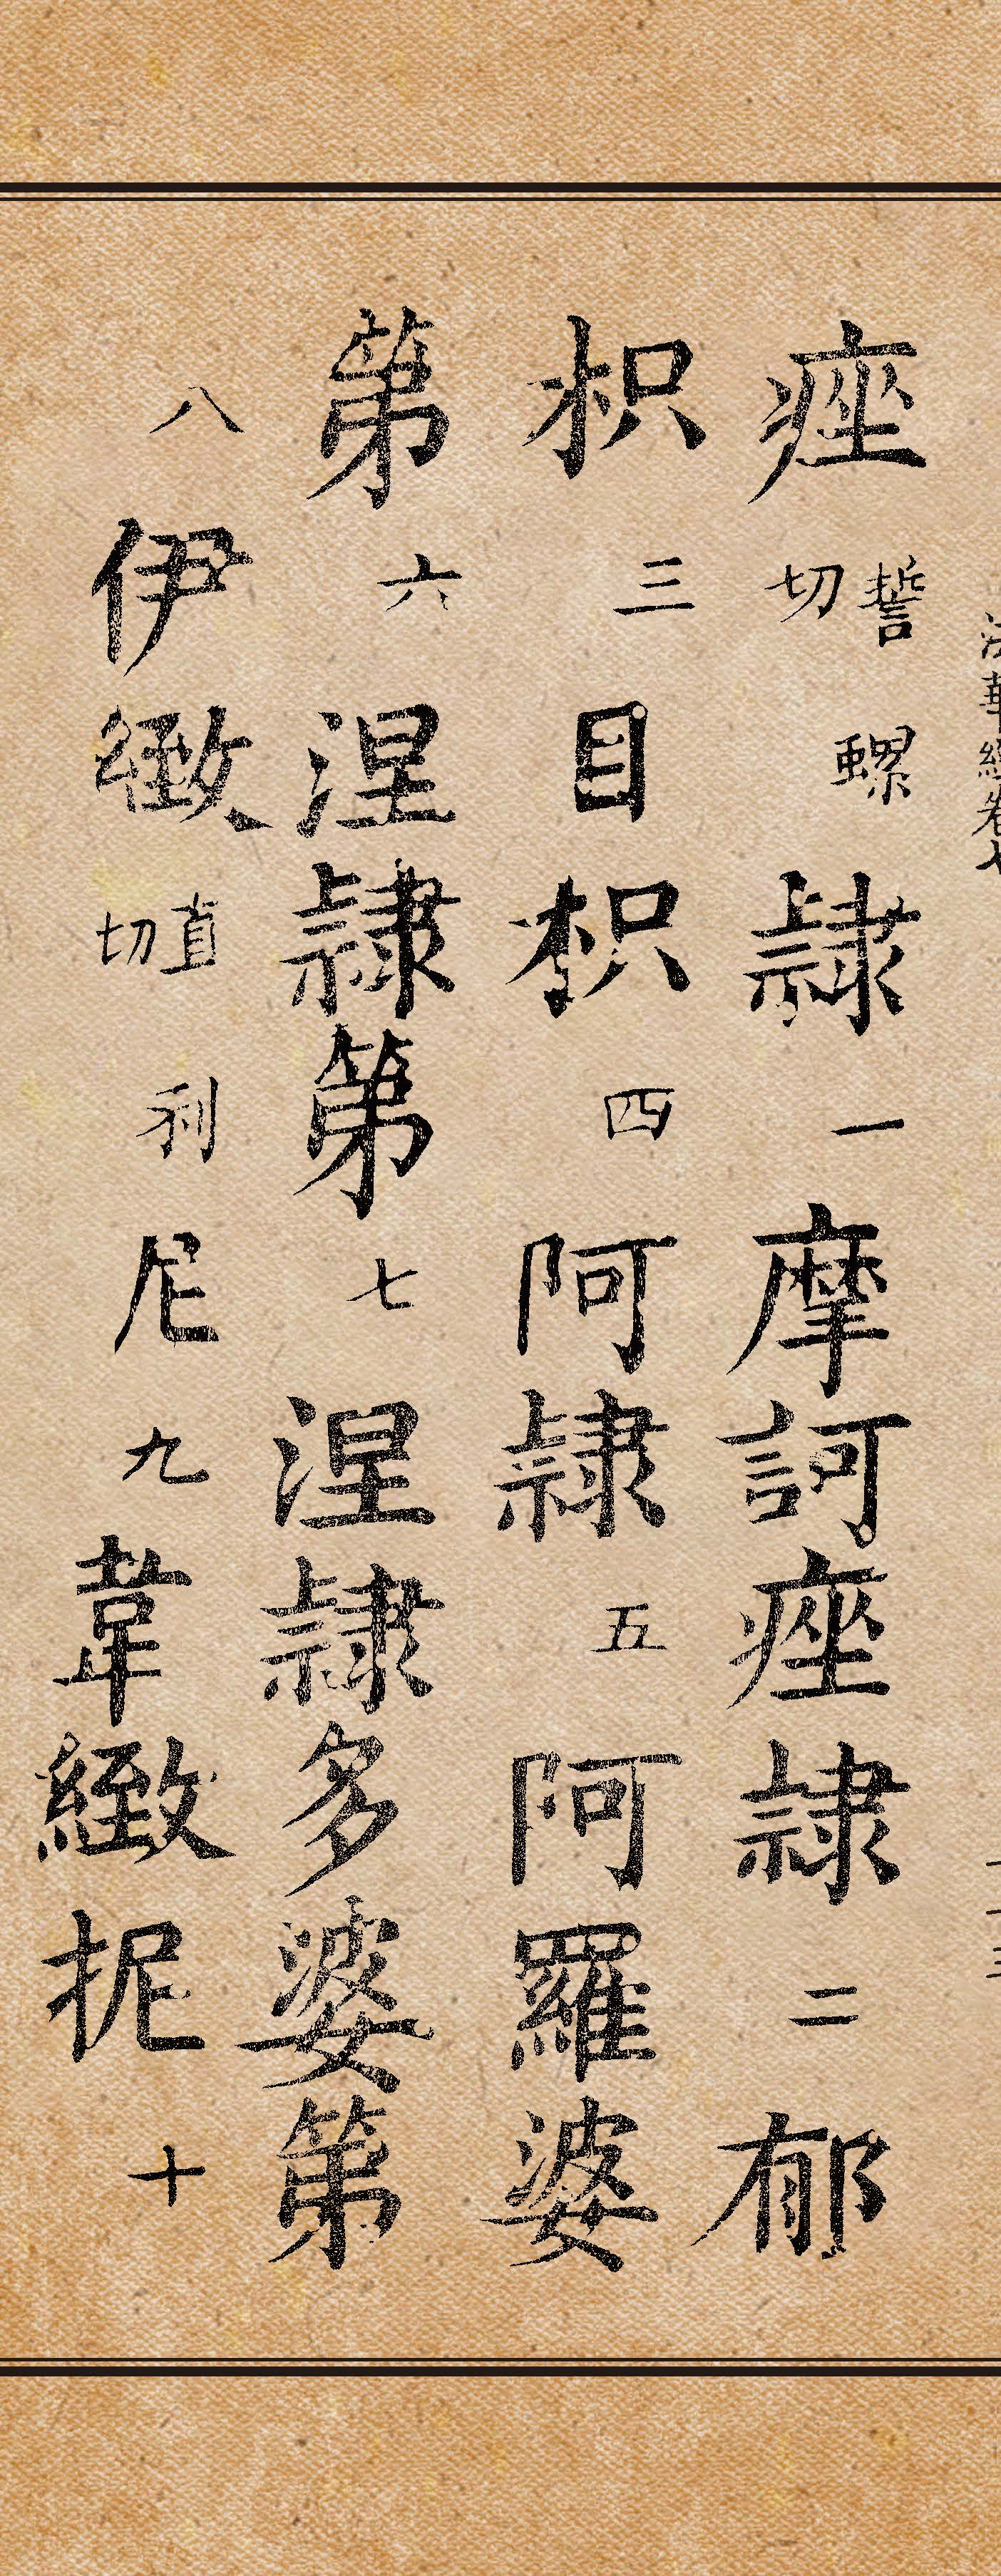 法華經卷七
痤誓螺切隷一摩訶痤隷二郁
枳三目枳四阿隷五阿羅婆
第六涅隷第七涅隷多婆第
八伊緻直利切尼九韋緻抳十